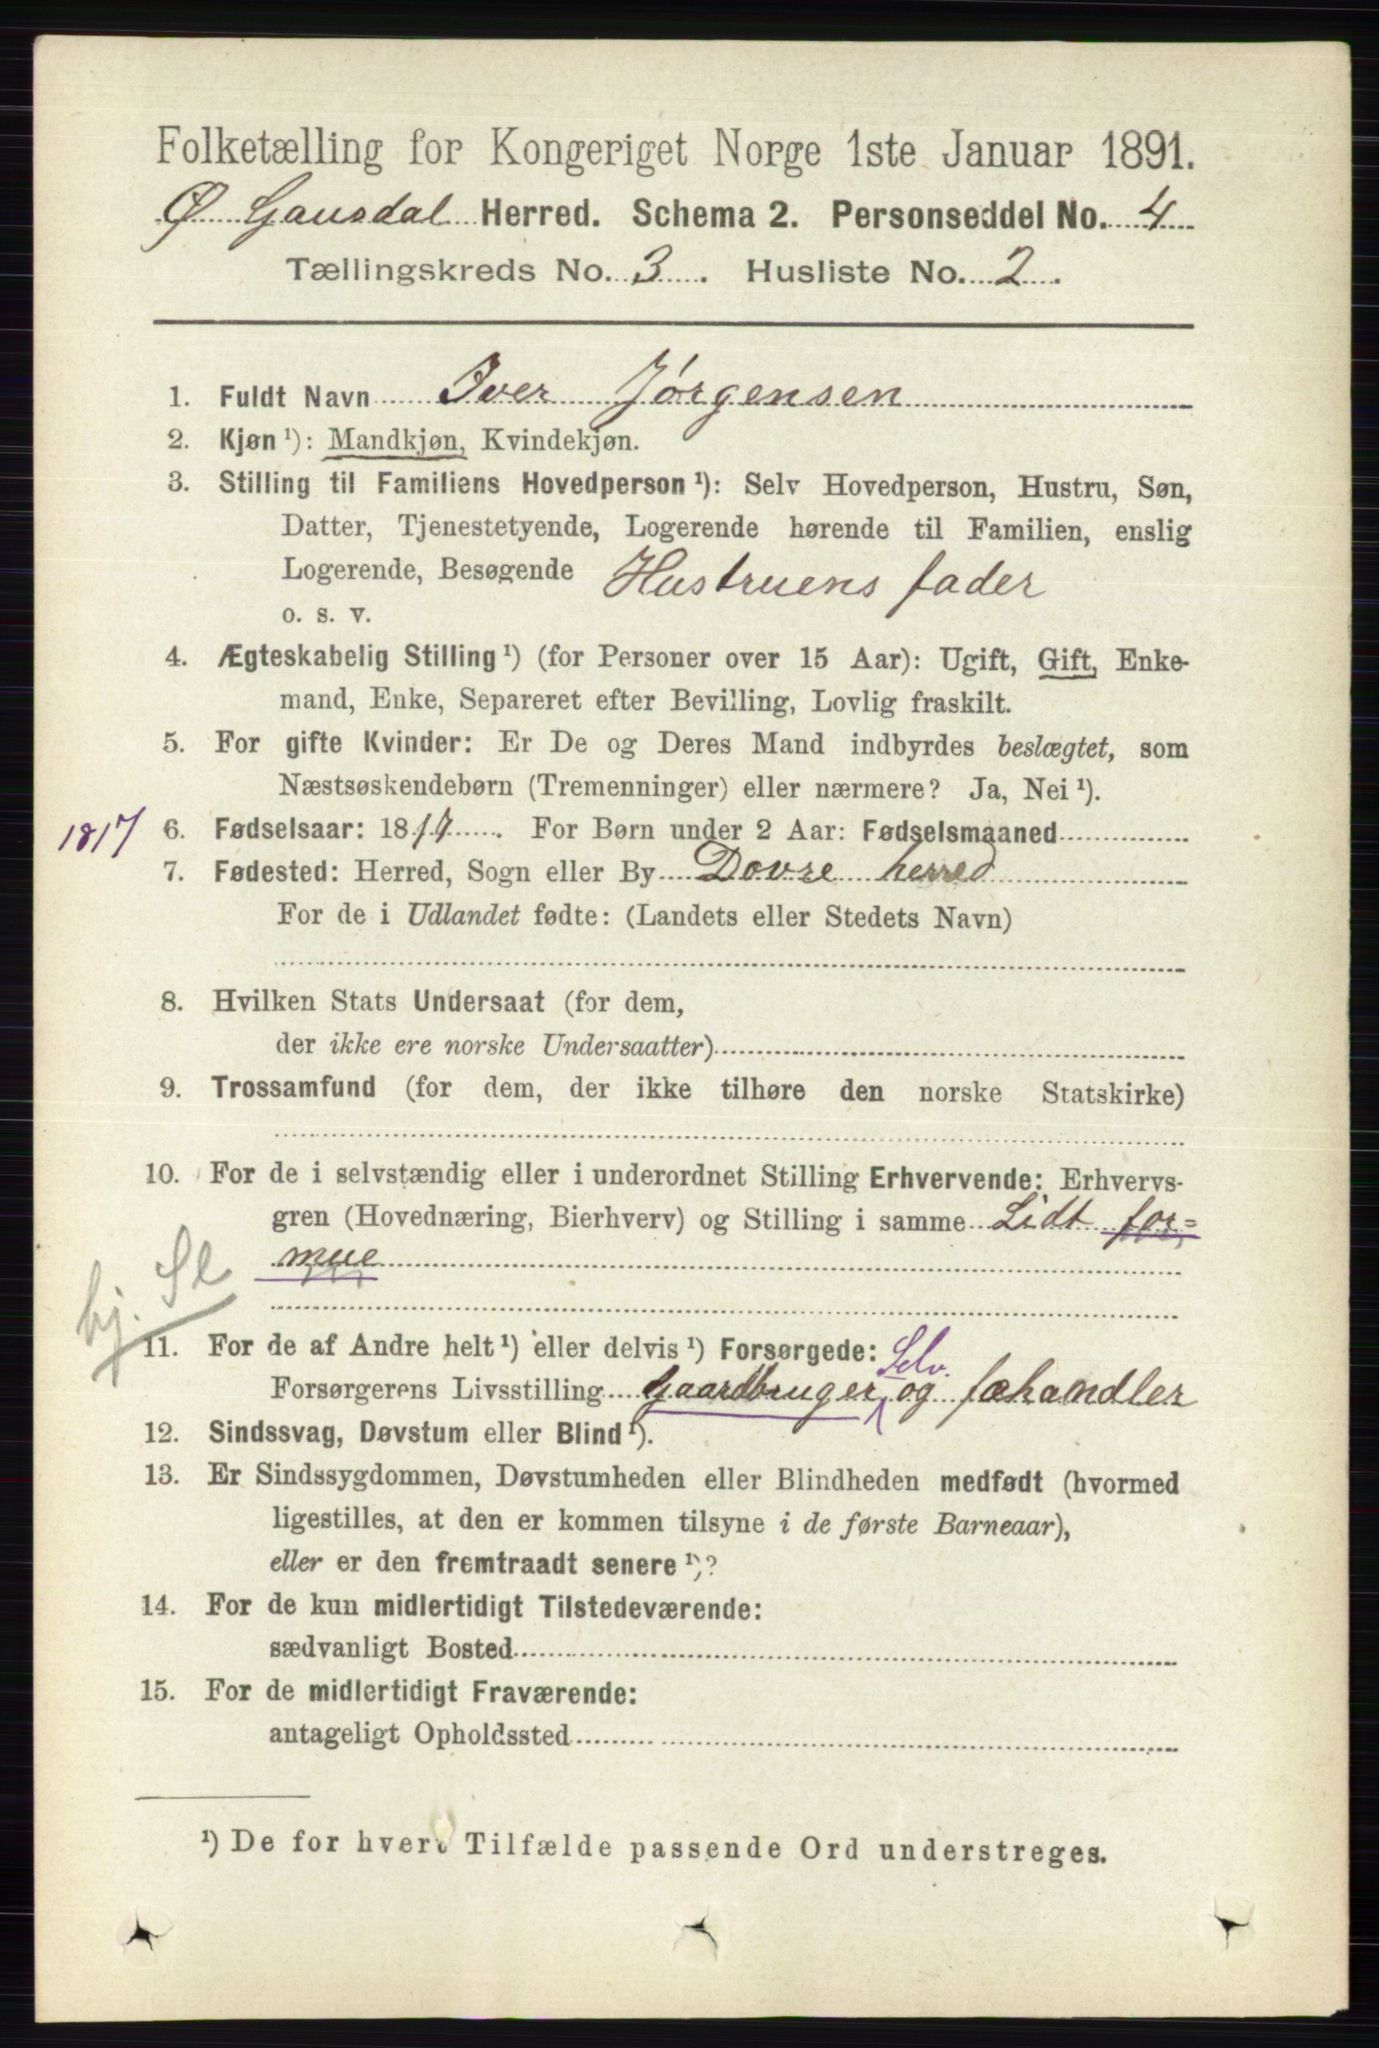 Folketælling for Kongeriget Norge 1ste Januar 1891.
Ø. Gausdal Herred. Schema 2. Personseddel No. 4
Tællingskreds No. 3. Husliste No. 2.
1. Fuldt Navn Iver Jørgensen
2. Kjøn ¹): Mandkjøn, Kvindekjøn.
3. Stilling til Familiens Hovedperson ¹): Selv Hovedperson, Hustru, Søn,
Datter, Tjenestetyende, Logerende hørende til Familien, enslig
Logerende, Besøgende Hustruens fader
o. s. v.
4. Ægteskabelig Stilling ¹) (for Personer over 15 Aar): Ugift, Gift, Enke-
mand, Enke, Separeret efter Bevilling, Lovlig fraskilt.
5. For gifte Kvinder: Er De og Deres Mand indbyrdes beslægtet, som
Næstsøskendebørn (Tremenninger) eller nærmere? Ja, Nei ¹).
1817 6. Fødselsaar: 1817. For Børn under 2 Aar: Fødselsmaaned
7. Fødested: Herred, Sogn eller By Dovre herred
For de i Udlandet fødte: (Landets eller Stedets Navn)
8. Hvilken Stats Undersaat (for dem,
der ikke ere norske Undersaatter)
9. Trossamfund (for dem, der ikke tilhøre den norske Statskirke)
10. For de i selvstændig eller i underordnet Stilling Erhvervende: Erhvervs-
gren (Hovednæring, Bierhverv) og Stilling i samme Lidt for=
mue
hj. Sl
11. For de af Andre helt ¹) eller delvis ¹) Forsørgede: Selv.
Forsørgerens Livsstilling Gaardbruger og fæhandler
12. Sindssvag, Døvstum eller Blind ¹).
13. Er Sindssygdommen, Døvstumheden eller Blindheden medfødt (hvormed
ligestilles, at den er kommen tilsyne i de første Barneaar),
eller er den fremtraadt senere ¹)?
14. For de kun midlertidigt Tilstedeværende:
sædvanligt Bosted
15. For de midlertidigt Fraværende:
antageligt Opholdssted
¹) De for hvert Tilfælde passende Ord understreges.